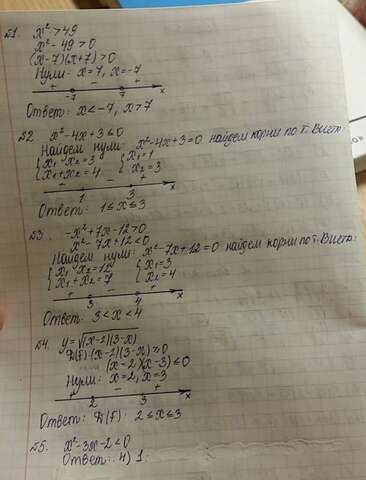 №1. x² > 49
x² - 49 > 0
(x-7)(x+7) > 0
Нули: x = 7, x = -7
+ - +
-7 7 x
Ответ: x < -7, x > 7
№2 x² - 4x + 3 ≤ 0
Найдем нули: x² - 4x + 3 = 0 найдем корни по т. Виета:
{x₁ · x₂ = 3 {x₁ = 1
{x₁ + x₂ = 4 {x₂ = 3
+ - +
1 3 x
Ответ: 1 ≤ x ≤ 3
№3 -x² + 7x - 12 > 0
x² - 7x + 12 < 0
Найдем нули: x² - 7x + 12 = 0 найдем корни по т. Виета:
{x₁ · x₂ = 12 {x₁ = 3
{x₁ + x₂ = 7 {x₂ = 4
+ - +
3 4 x
Ответ: 3 < x < 4
№4. y = √(x-2)(3-x)
(x-2)(3-x) ≥ 0
(x-2)(x-3) ≤ 0
Нули: x = 2, x = 3
+ - +
2 3 x
Ответ: 2 ≤ x ≤ 3
№5. x² - 3x - 2 < 0
Ответ: 4) 1.